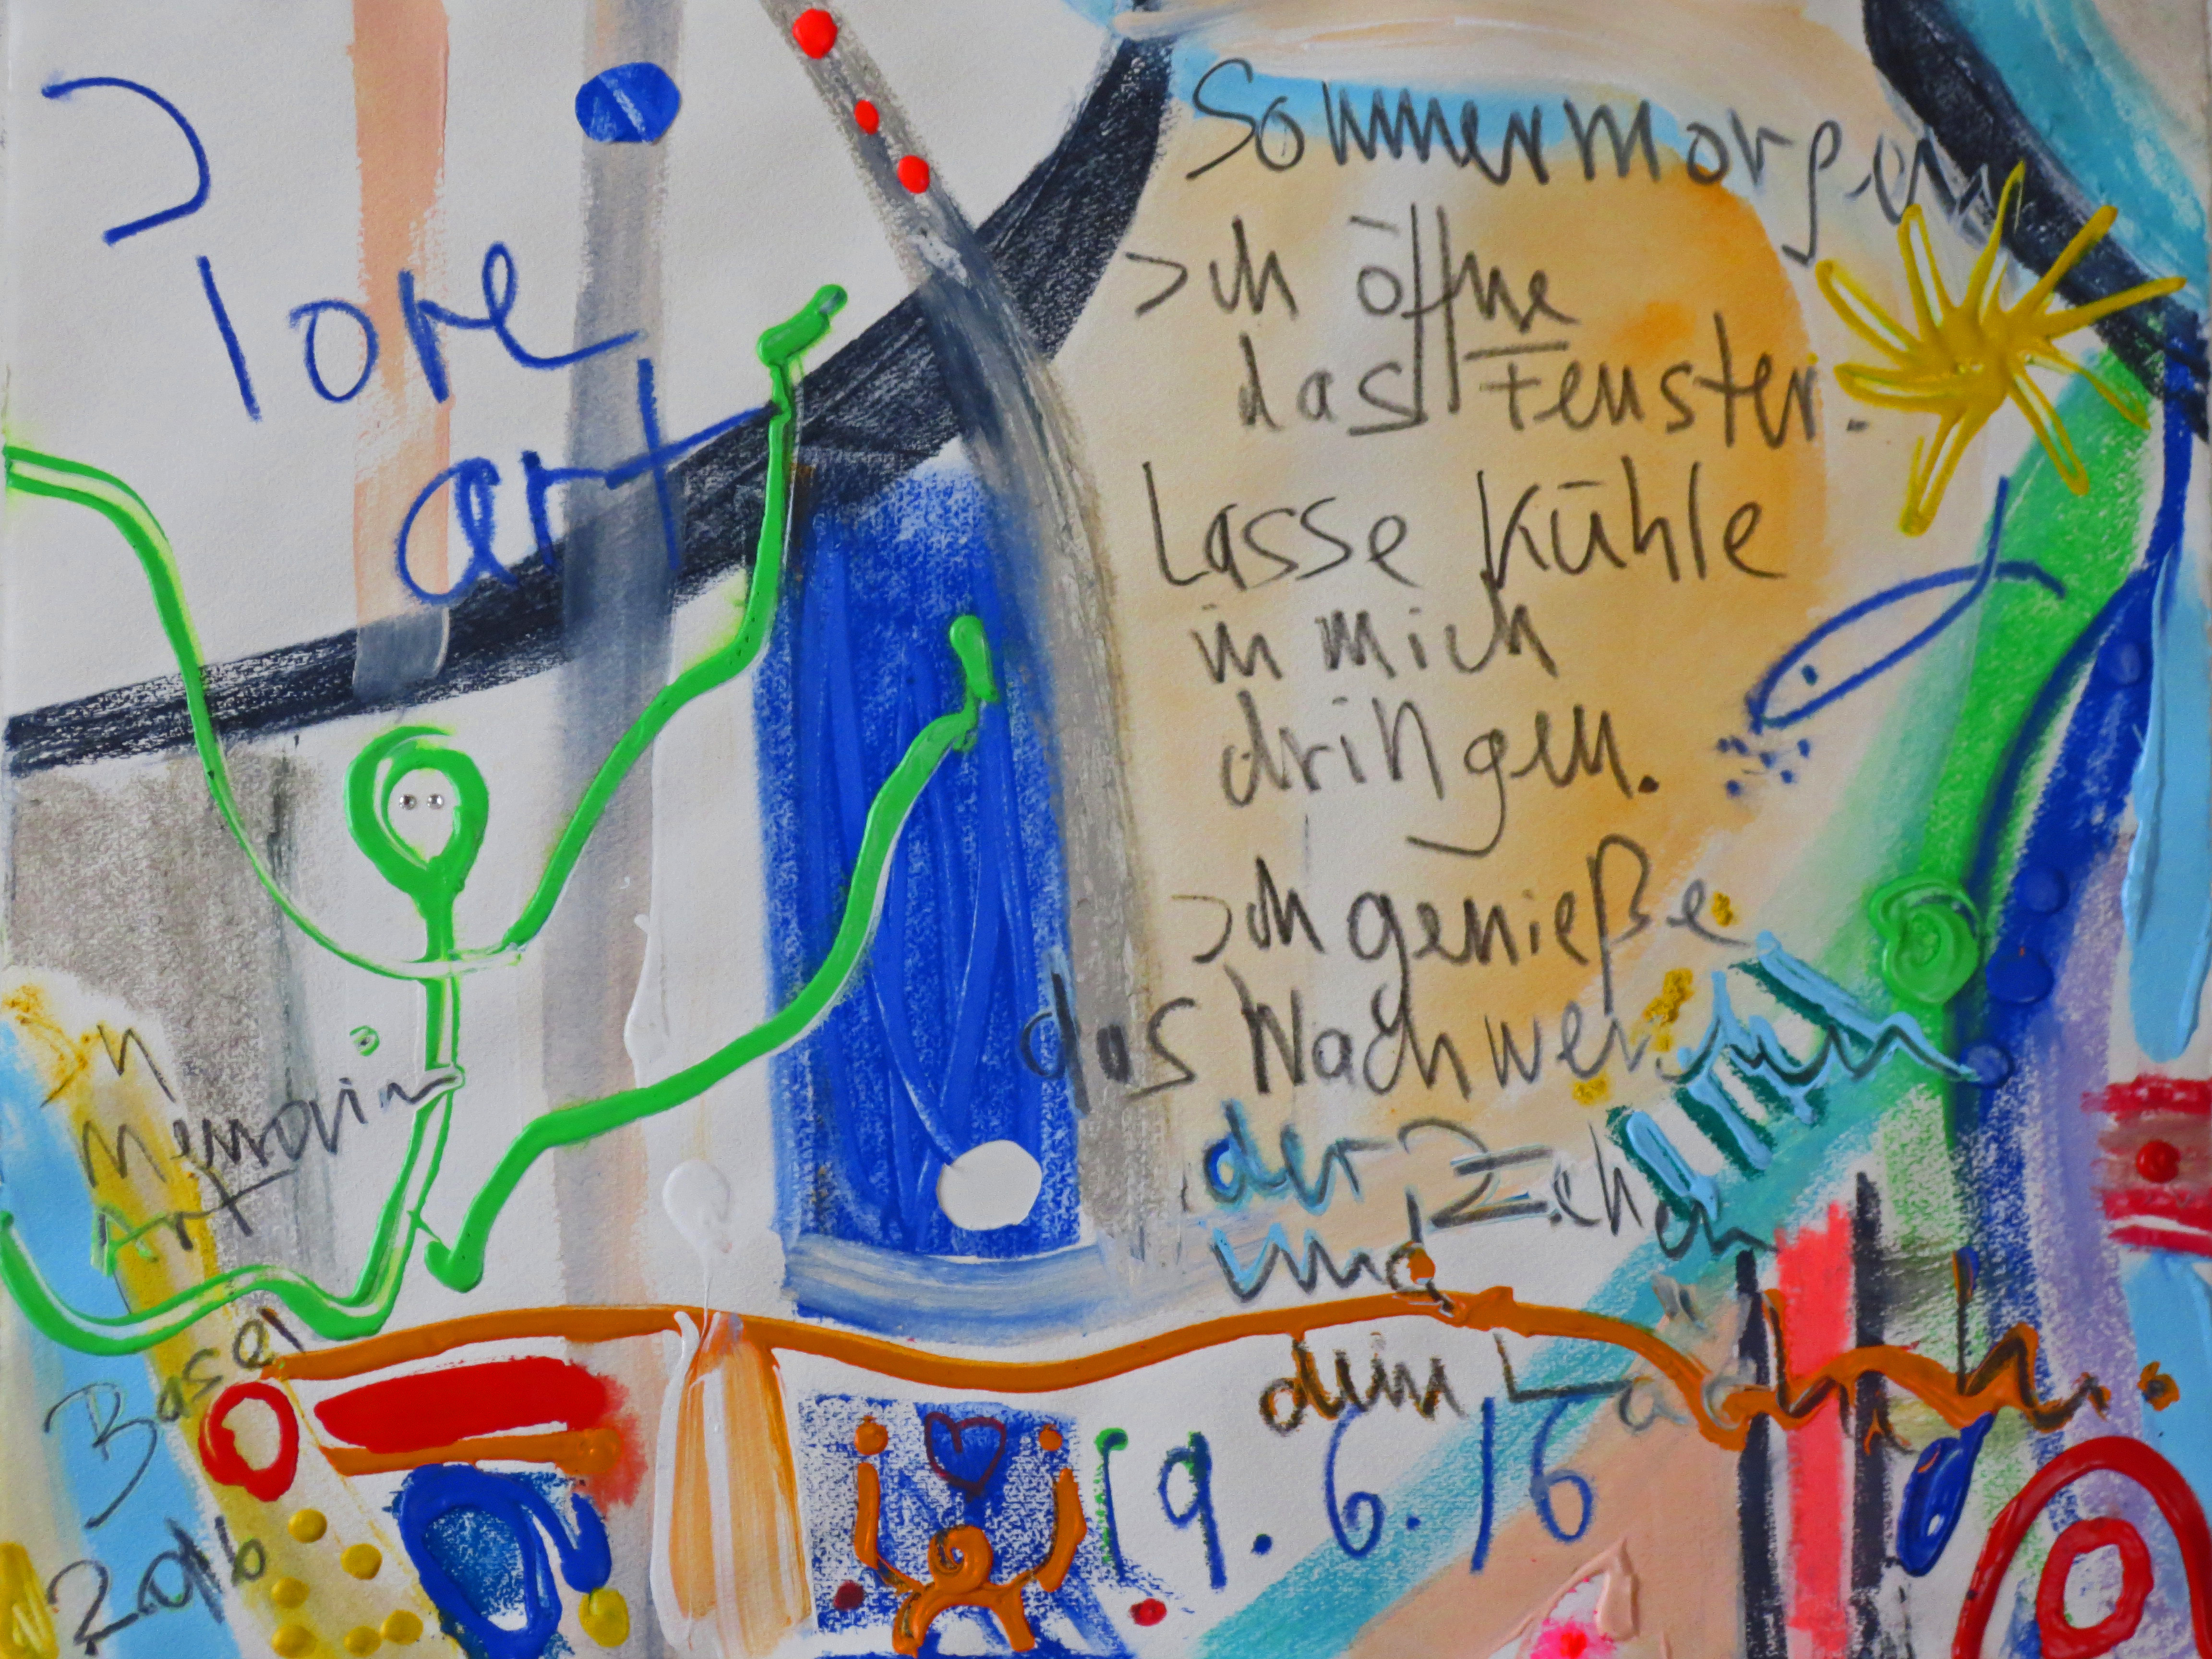 I
love
art
Sommermorgen
Ich öffne
das Fenster.
Lasse Kühle
in mich
dringen.
Ich genieße
das Nachwer
der Zehen
und
dein Lächeln.
19.6.16
In
Memoriam
Art
Basel
2016